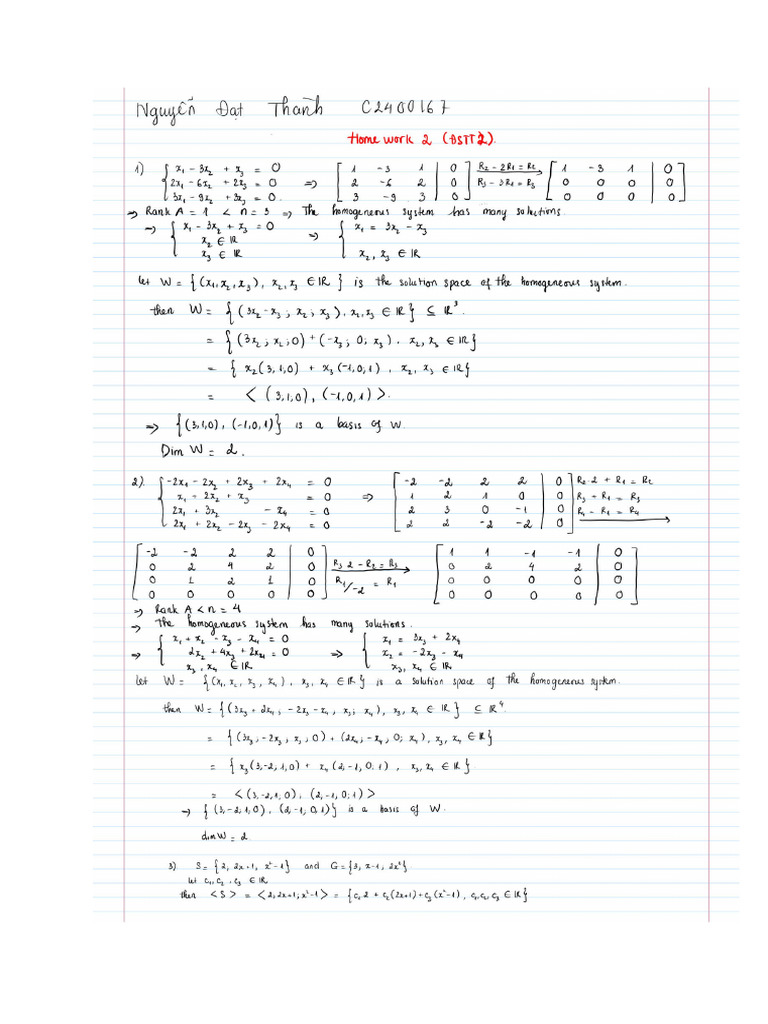 Nguyễn Đạt Thành C2400167
Home work 2 (ĐSTT2).
1) { x₁ - 3x₂ + x₃ = 0 [ 1 -3 1 | 0 ] R₂ - 2R₁ = R₂ [ 1 -3 1 | 0 ]
2x₁ - 6x₂ + 2x₃ = 0 => [ 2 -6 2 | 0 ] R₃ - 3R₁ = R₃ [ 0 0 0 | 0 ]
3x₁ - 9x₂ + 3x₃ = 0. [ 3 -9 3 | 0 ] [ 0 0 0 | 0 ]
=> Rank A = 1 < n = 3 => The homogeneous system has many solutions.
=> { x₁ - 3x₂ + x₃ = 0 => { x₁ = 3x₂ - x₃
x₂ ∈ ℝ
x₃ ∈ ℝ x₂, x₃ ∈ ℝ
let W = { (x₁, x₂, x₃), x₂, x₃ ∈ ℝ } is the solution space of the homogeneous system.
then W = { (3x₂ - x₃ ; x₂ ; x₃), x₂, x₃ ∈ ℝ } ⊆ ℝ³.
= { (3x₂ ; x₂ ; 0) + (-x₃ ; 0 ; x₃), x₂, x₃ ∈ ℝ }
= { x₂(3,1,0) + x₃(-1,0,1), x₂, x₃ ∈ ℝ }
= < (3,1,0), (-1,0,1) >.
=> { (3,1,0), (-1,0,1) } is a basis of W.
Dim W = 2.
2). { -2x₁ - 2x₂ + 2x₃ + 2x₄ = 0 [ -2 -2 2 2 | 0 ] R₂.2 + R₁ = R₂
x₁ + 2x₂ + x₃ = 0 => [ 1 2 1 0 | 0 ] R₃ + R₁ = R₃
2x₁ + 3x₂ - x₄ = 0 [ 2 3 0 -1 | 0 ] R₄ - R₁ = R₄
2x₁ + 2x₂ - 2x₃ - 2x₄ = 0 [ 2 2 -2 -2 | 0 ]
[ -2 -2 2 2 | 0 ] [ 1 1 -1 -1 | 0 ]
[ 0 2 4 2 | 0 ] R₃.2 - R₂ = R₃ [ 0 2 4 2 | 0 ]
[ 0 1 2 1 | 0 ] R₁/-2 = R₁ [ 0 0 0 0 | 0 ]
[ 0 0 0 0 | 0 ] [ 0 0 0 0 | 0 ]
=> Rank A < n = 4
=> The homogeneous system has many solutions.
{ x₁ + x₂ - x₃ - x₄ = 0 { x₁ = 3x₃ + 2x₄
=> 2x₂ + 4x₃ + 2x₄ = 0 => x₂ = -2x₃ - x₄
x₃, x₄ ∈ ℝ x₃, x₄ ∈ ℝ
let W = { (x₁, x₂, x₃, x₄), x₃, x₄ ∈ ℝ } is a solution space of the homogeneous system.
then W = { (3x₃ + 2x₄ ; -2x₃ - x₄ ; x₃ ; x₄), x₃, x₄ ∈ ℝ } ⊆ ℝ⁴.
= { (3x₃ ; -2x₃ ; x₃ ; 0) + (2x₄ ; -x₄ ; 0 ; x₄), x₃, x₄ ∈ ℝ }
= { x₃(3,-2,1,0) + x₄(2,-1,0,1), x₃, x₄ ∈ ℝ }
= < (3,-2,1,0), (2,-1,0,1) >
=> { (3,-2,1,0), (2,-1,0,1) } is a basis of W.
dim W = 2.
3) S = {2, 2x+1, x²-1} and G = {3, x-1, 2x²}
let c₁, c₂, c₃ ∈ ℝ
then <S> = <2, 2x+1, x²-1> = {c₁.2 + c₂(2x+1) + c₃(x²-1), c₁, c₂, c₃ ∈ ℝ}